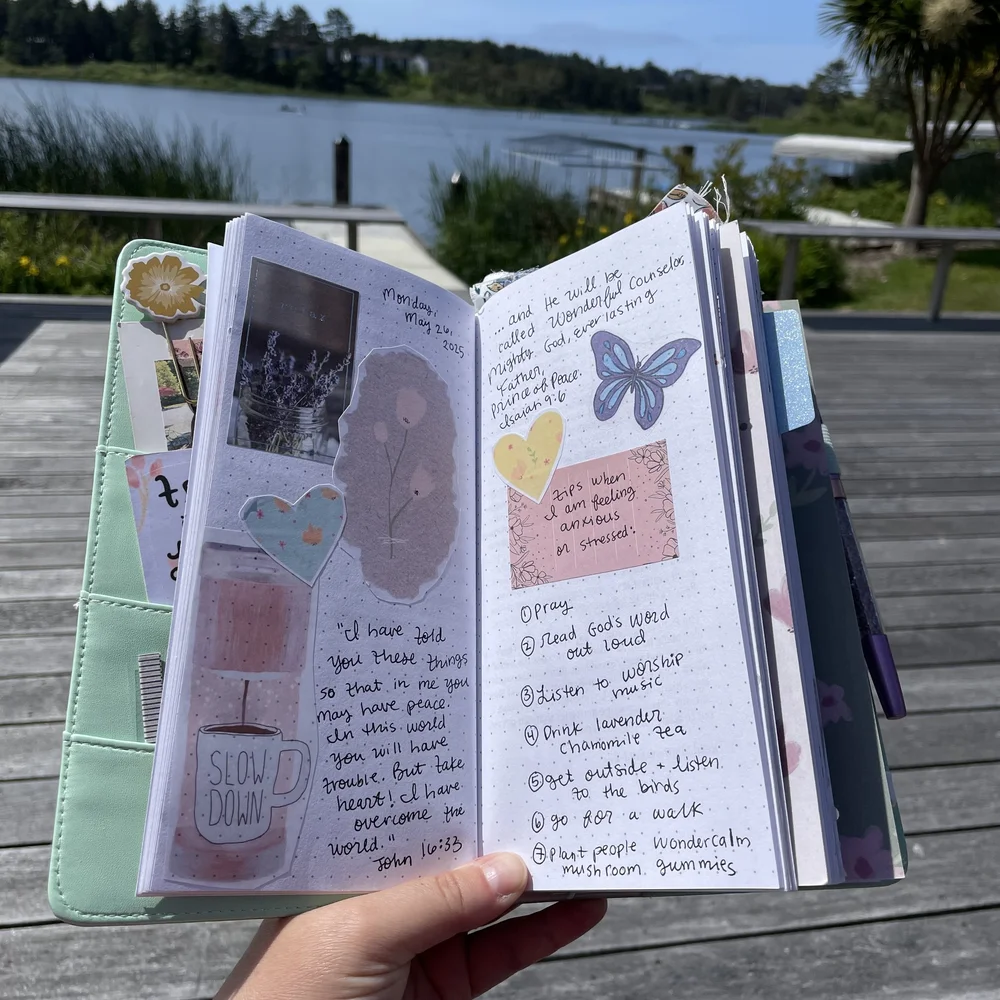 Monday,
May 26,
2025
SLOW
DOWN
"I have told
you these things
so that in me you
may have peace.
In this world
you will have
trouble. But take
heart! I have
overcome the
world."
John 16:33
...and He will be
called Wonderful Counselor,
Mighty God, Everlasting
Father,
Prince of Peace.
Isaiah 9:6
Tips when
I am feeling
anxious
or stressed:
① Pray
② read God's word
out loud
③ Listen to worship
music
④ Drink lavender
chamomile tea
⑤ get outside + listen
to the birds
⑥ go for a walk
⑦ Plant people Wondercalm
mushroom gummies